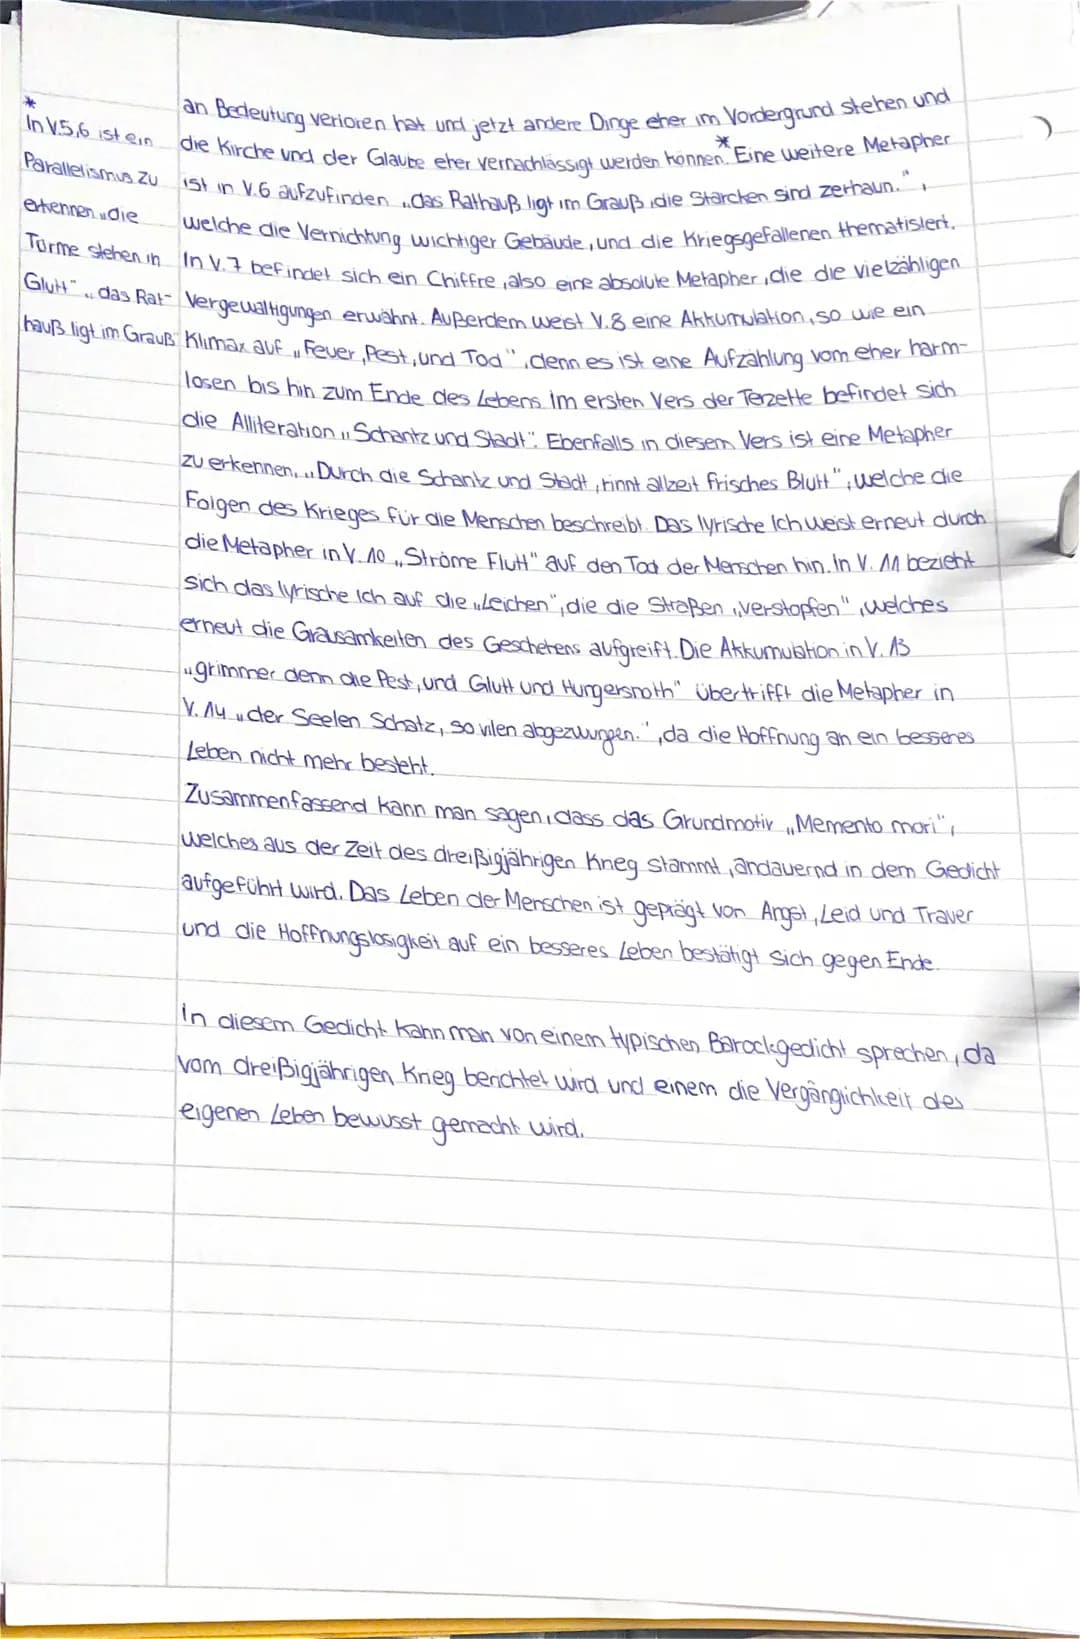 *
In V.5,6 ist ein
Parallelismus zu
erkennen „die
Türme stehen in
Glutt", „das Rat-
hauß ligt im Grauß"
an Bedeutung verloren hat und jetzt andere Dinge eher im Vordergrund stehen und
die Kirche und der Glaube eher vernachlässigt werden können.* Eine weitere Metapher
ist in V.6 aufzufinden „das Rathauß ligt im Grauß, die Starcken sind zerhaun.",
welche die Vernichtung wichtiger Gebäude, und die Kriegsgefallenen thematisiert.
In V.7 befindet sich ein Chiffre, also eine absolute Metapher, die die vielzähligen
Vergewaltigungen erwähnt. Außerdem weist V.8 eine Akkumulation, so wie ein
Klimax auf „Feuer, Pest, und Tod", denn es ist eine Aufzählung vom eher harm-
losen bis hin zum Ende des Lebens. Im ersten Vers der Terzette befindet sich
die Alliteration „Schantz und Stadt". Ebenfalls in diesem Vers ist eine Metapher
zu erkennen, „Durch die Schantz und Stadt, rinnt allzeit frisches Blutt", welche die
Folgen des Krieges für die Menschen beschreibt. Das lyrische Ich weist erneut durch
die Metapher in V. 10 „Ströme Flutt" auf den Tod der Menschen hin. In V. 11 bezieht
sich das lyrische Ich auf die „Leichen", die die Straßen „verstopfen", welches
erneut die Grausamkeiten des Geschehens aufgreift. Die Akkumulation in V. 13
„grimmer denn die Pest, und Glutt und Hungersnoth" übertrifft die Metapher in
V. 14 „der Seelen Schatz, so vilen abgezwungen.", da die Hoffnung an ein besseres
Leben nicht mehr besteht.
Zusammenfassend kann man sagen, dass das Grundmotiv „Memento mori",
welches aus der Zeit des dreißigjährigen Krieg stammt, andauernd in dem Gedicht
aufgeführt wird. Das Leben der Menschen ist geprägt von Angst, Leid und Trauer
und die Hoffnungslosigkeit auf ein besseres Leben bestätigt sich gegen Ende.
In diesem Gedicht kann man von einem typischen Barockgedicht sprechen, da
vom dreißigjährigen Krieg berichtet wird und einem die Vergänglichkeit des
eigenen Leben bewusst gemacht wird.